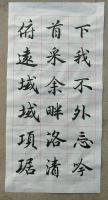 下我不外忘吟
首采余畔洛清
俯遠域域項琚